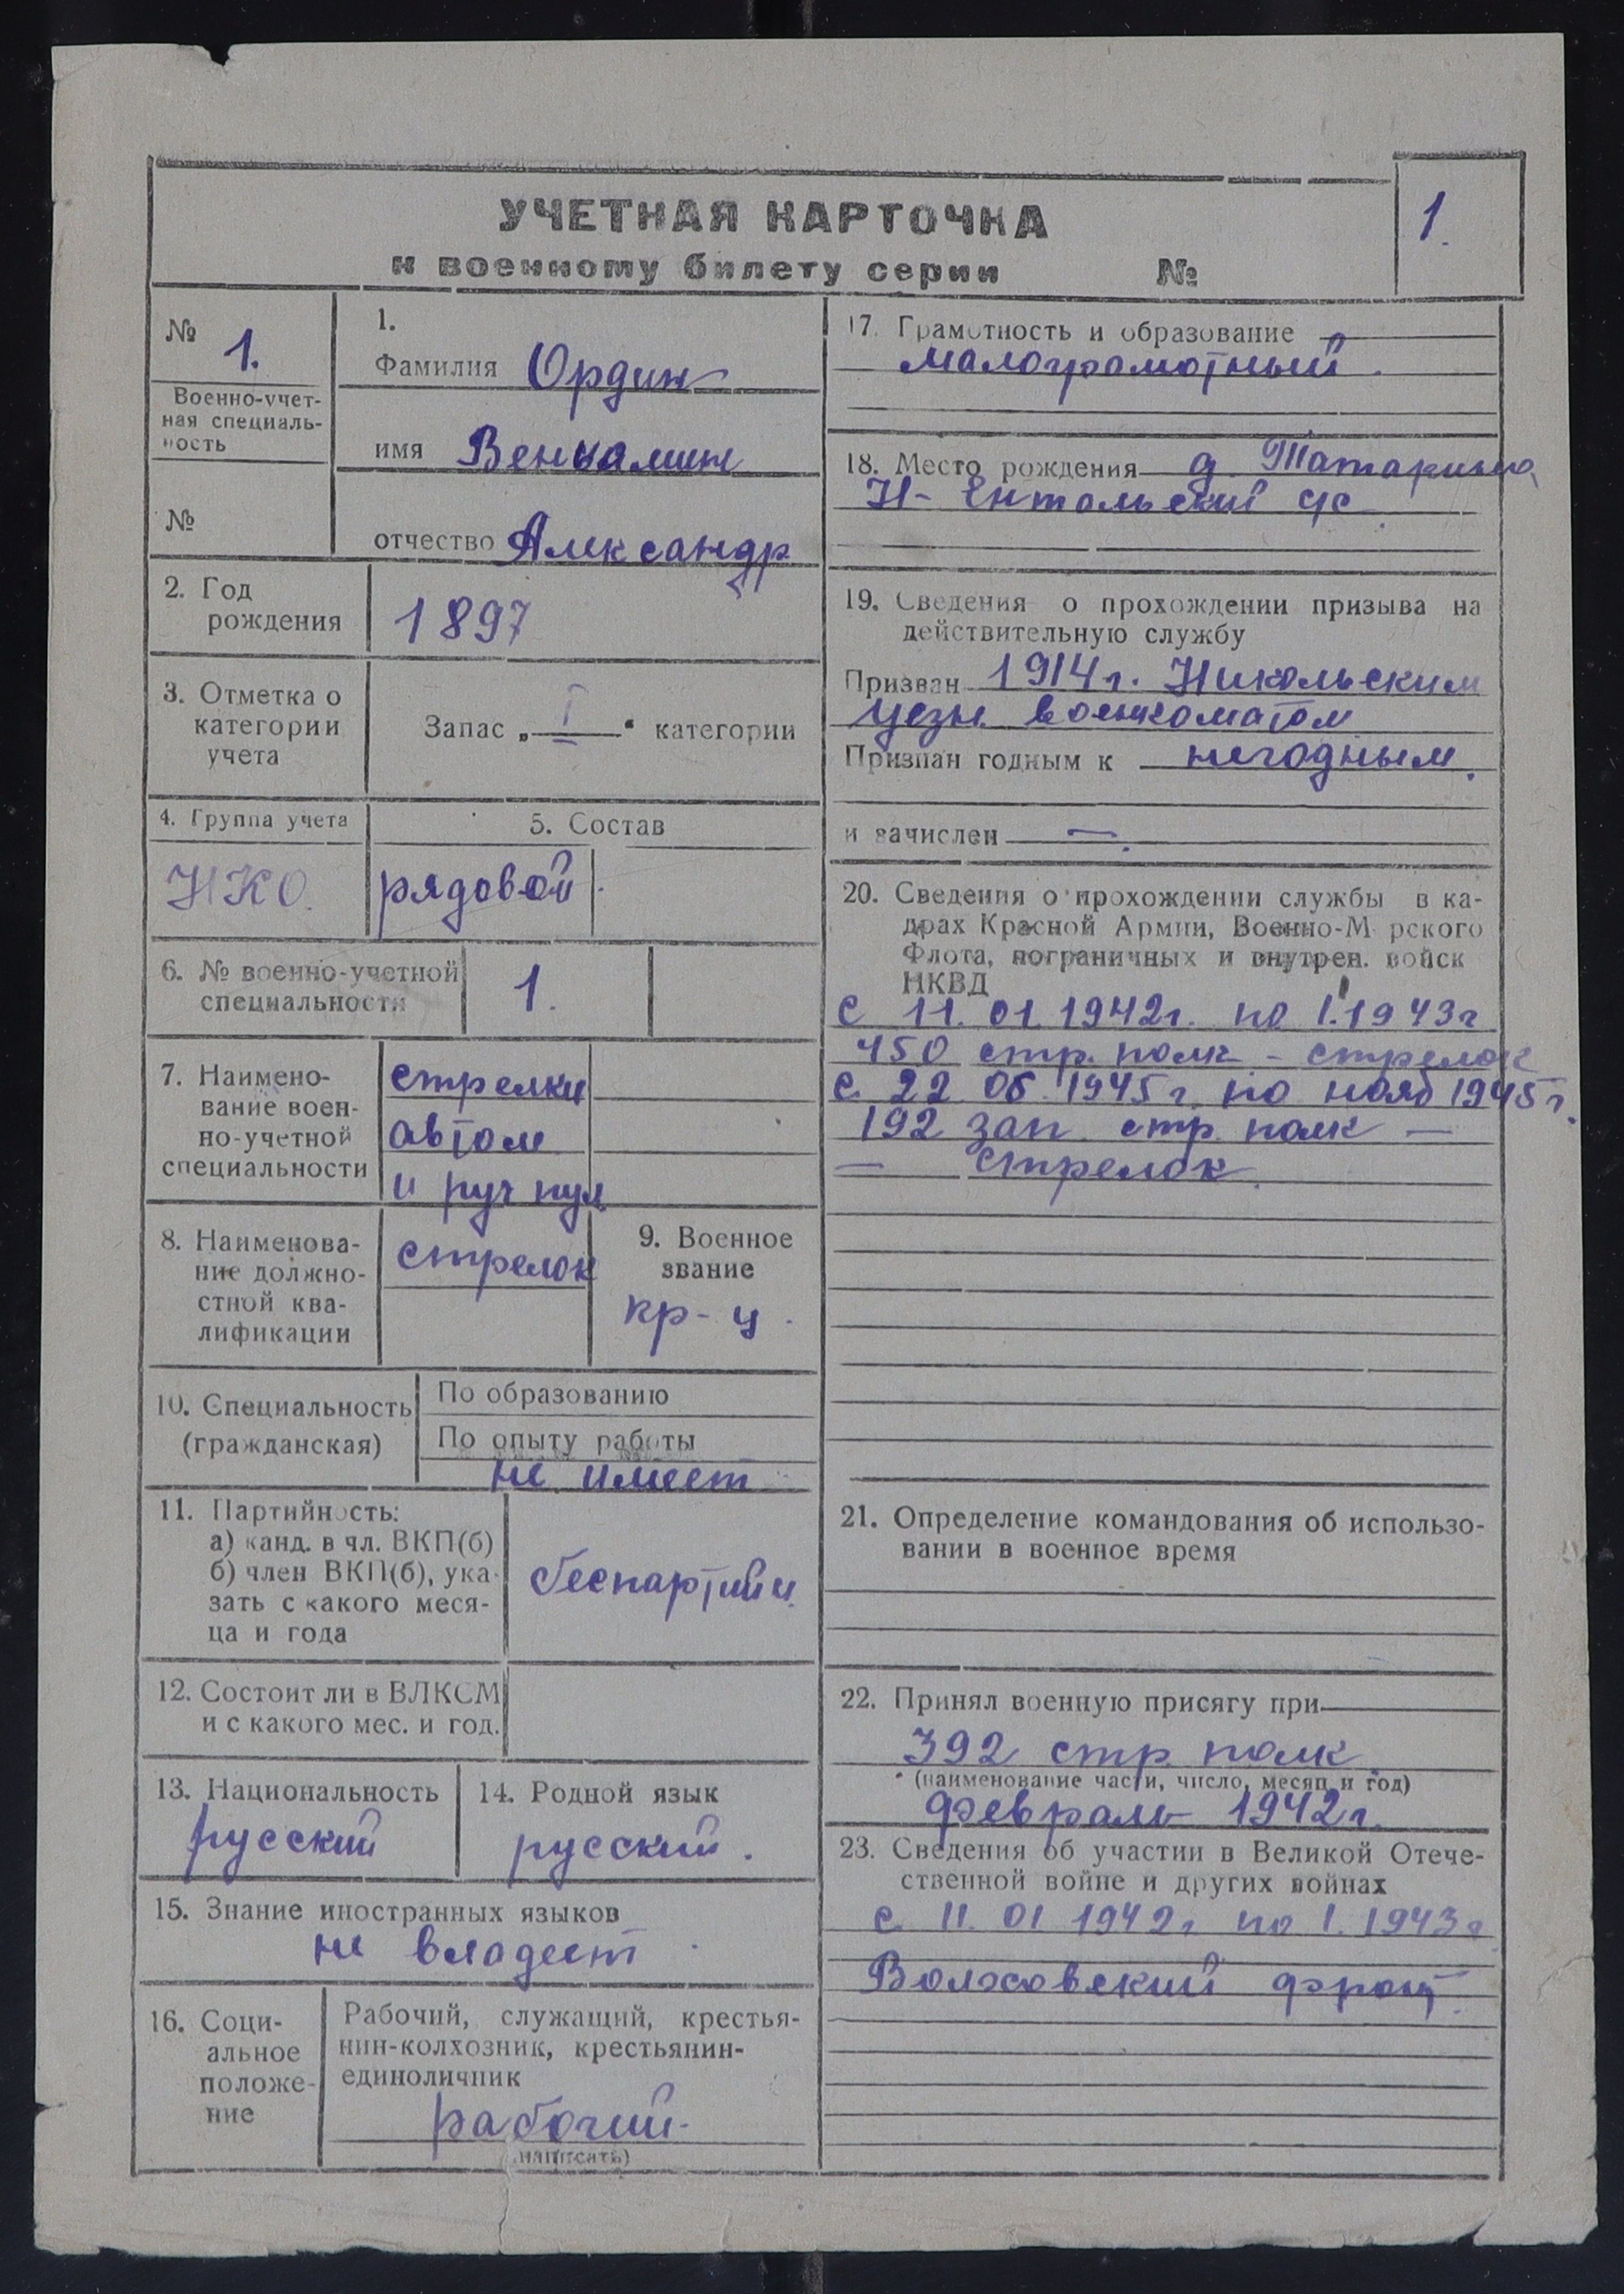 УЧЕТНАЯ КАРТОЧКА
к военному билету серии №
1.
№ 1.
Военно-учет-
ная специаль-
ность
№
1.
Фамилия Ордин
имя Вениамин
отчество Александр
2. Год
рождения
1897
3. Отметка о
категории
учета
Запас „ I “ категории
4. Группа учета
НКО.
5. Состав
рядовой
6. № военно-учетной
специальности
1.
7. Наимено-
вание воен-
но-учетной
специальности
стрелки
автом
и руч пул
8. Наименова-
ние должно-
стной ква-
лификации
стрелок
9. Военное
звание
кр-ц.
10. Специальность
(гражданская)
По образованию
По опыту работы
не имеет
11. Партийность:
а) канд. в чл. ВКП(б)
б) член ВКП(б), ука-
зать с какого меся-
ца и года
беспартийн.
12. Состоит ли в ВЛКСМ
и с какого мес. и год.
13. Национальность
русский
14. Родной язык
русский.
15. Знание иностранных языков
не владеет
16. Соци-
альное
положе-
ние
Рабочий, служащий, крестья-
нин-колхозник, крестьянин-
единоличник
рабочий
написать)
17. Грамотность и образование
малограмотный.
18. Место рождения д. Татарино
Н-Ентальский с/с
19. Сведения о прохождении призыва на
действительную службу
Призван 1914г. Никольским
уезн. военкоматом
Признан годным к негодным.
и зачислен —
20. Сведения о прохождении службы в ка-
драх Красной Армии, Военно-М рского
Флота, пограничных и внутрен. войск
НКВД
с 11.01.1942г. по I.1943г
450 стр. полк - стрелок
с 22 06 1945г. по нояб 1945г.
192 зап. стр. полк —
— стрелок.
21. Определение командования об использо-
вании в военное время
22. Принял военную присягу при
392 стр. полк
(наименование части, число, месяц и год)
февраль 1942г.
23. Сведения об участии в Великой Отече-
ственной войне и других войнах
с 11.01 1942г по I.1943г
Волховский фронт.